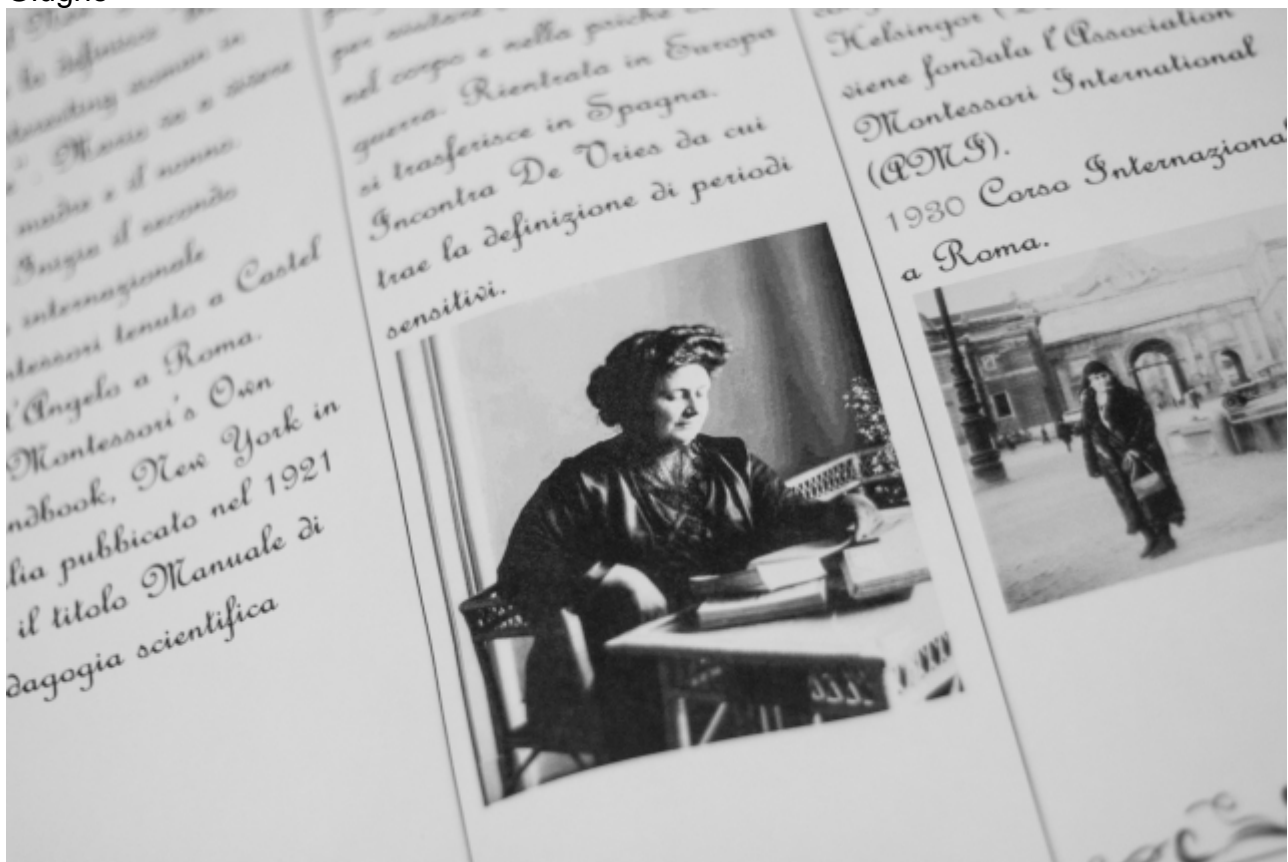 Giugno
la diffusa
standing
Maria
madre e il nonno.
Inizia il secondo
internazionale
tenuto a Castel
t'Angelo a Roma.
Montessori's Own
ndbook, New York in
lia pubbicato nel 1921
il titolo Manuale di
dagogia scientifica
per
nel corpo e nella psiche
guerra. Rientrata in Europa
si trasferisce in Spagna.
Incontra De Vries da cui
trae la definizione di periodi
sensitivi.
Helsingor
viene fondala l'Association
Montessori International
(AMI).
1930 Corso Internazional
a Roma.